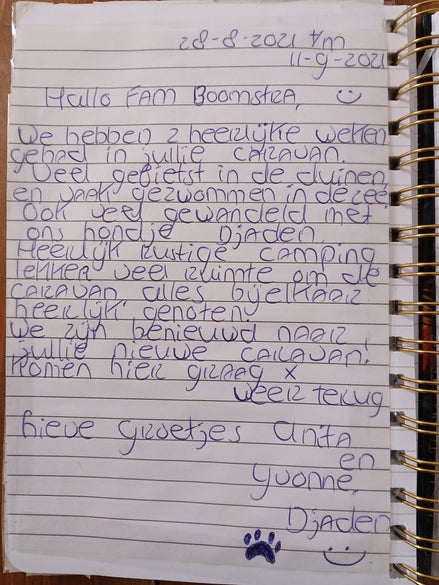 28-8-2021 t/m
11-9-2021
Hallo FAM Boomstra,
We hebben 2 heerlijke weken
gehad in jullie CARAVAN.
Veel gefietst in de duinen
en vaak gezwommen in de zee
Ook veel gewandeld met
ons hondje Djaden.
Heerlijk rustige camping
lekker veel ruimte om de
CARAVAN alles bijelkaar
heerlijk genoten.
We zijn benieuwd naar
jullie nieuwe CARAVAN.
Komen hier graag x
weer terug
Lieve groetjes Anita
en
Yvonne,
Djaden